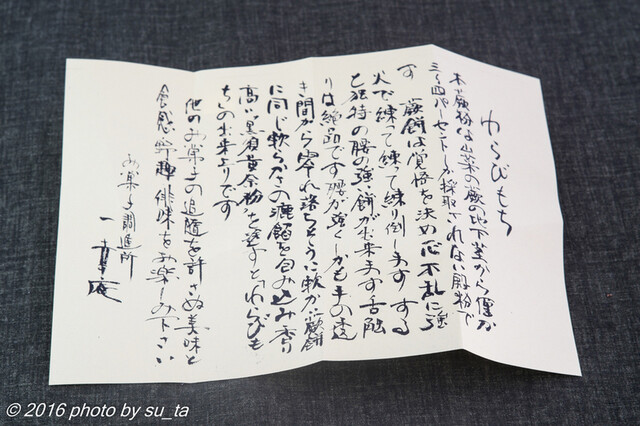 わらびもち
本蕨粉は山菜の蕨の地下茎から僅か
三〜四パーセントしか採取されない澱粉で
す 蕨餅は覚悟を決め心不乱に強
火で練って練って練り倒します する
と独特の腰の強い餅が出来ます 舌融
りは絶品です 腰が強くしかも手の透
き間から零れ落ちそうに軟かな蕨餅
に同じ軟らかさの漉餡を包み込み香り
高い黒須黄奈粉を塗すと「わらびも
ち」の出来上りです
他のお菓子の追随を許さぬ美味と
食感 野趣 俳味をお楽しみ下さい
お菓子調進所
一幸庵
© 2016 photo by su_ta